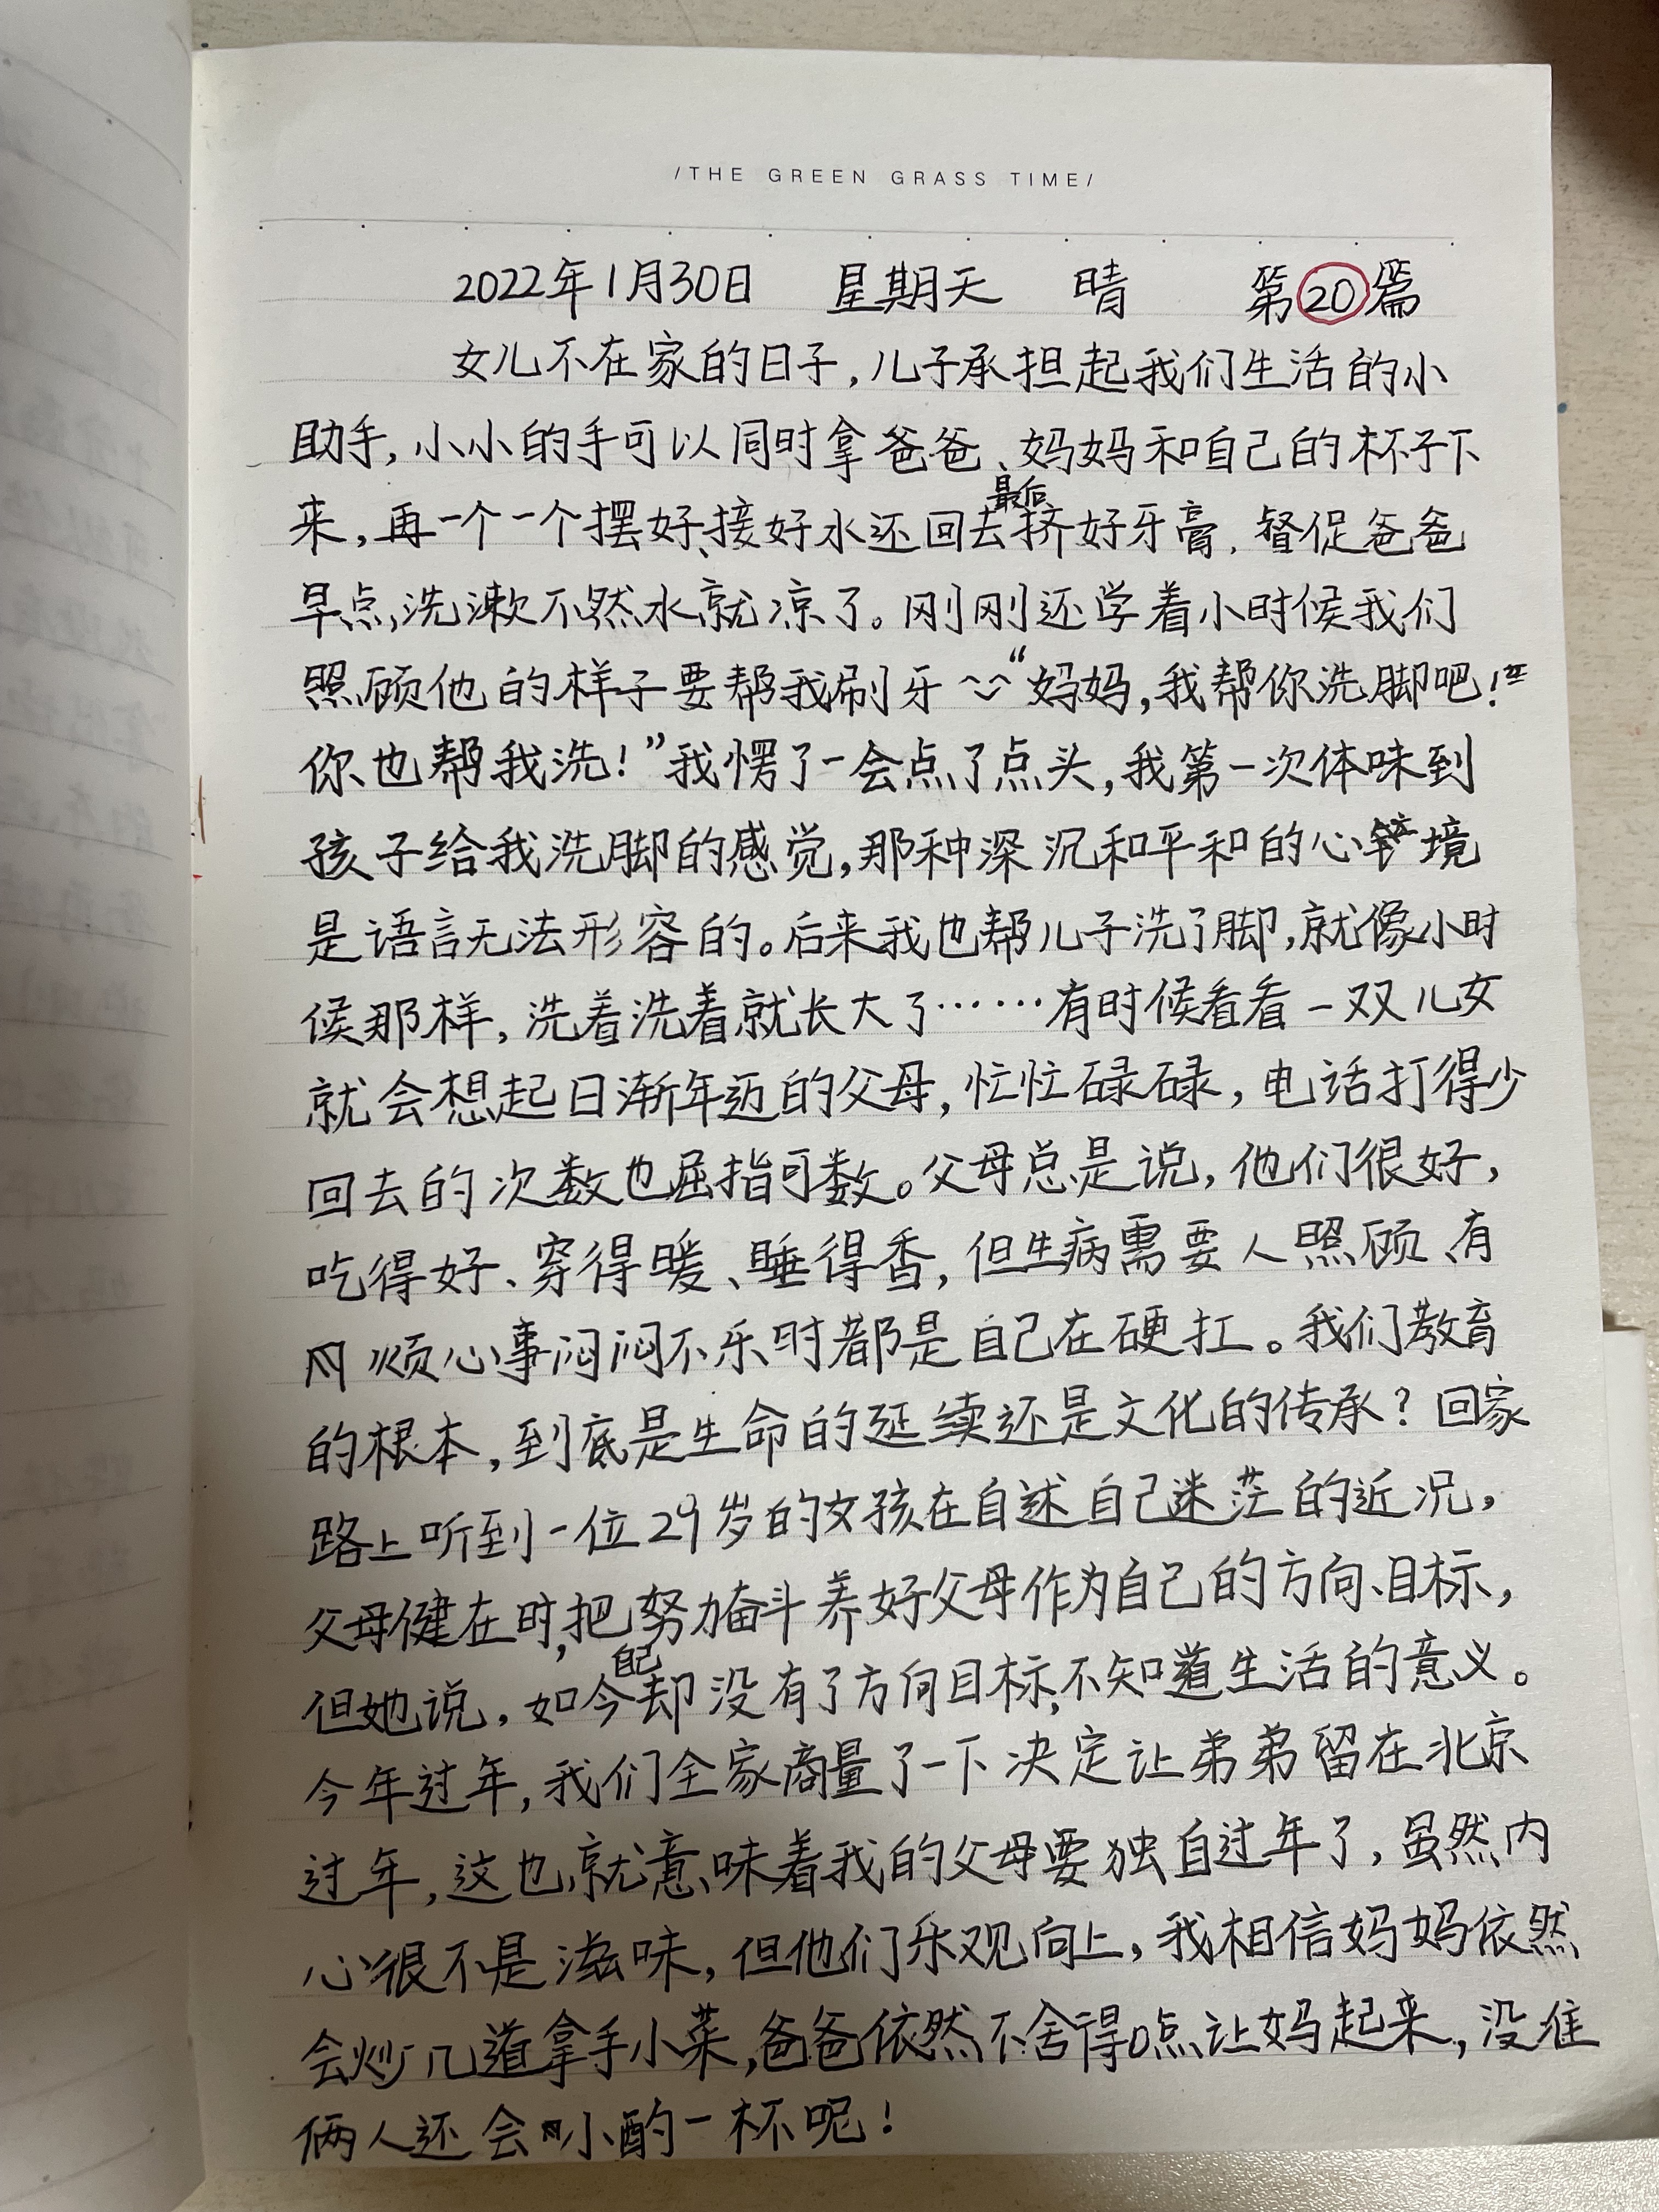 /THE GREEN GRASS TIME/
2022年1月30日 星期天 晴 第20篇
女儿不在家的日子,儿子承担起我们生活的小
助手,小小的手可以同时拿爸爸、妈妈和自己的杯子下
来,再一个一个摆好、接好水还回去最后挤好牙膏,督促爸爸
早点,洗漱不然水就凉了。刚刚还学着小时候我们
照顾他的样子要帮我刷牙~~“妈妈,我帮你洗脚吧!
你也帮我洗!”我愣了一会点了点头,我第一次体味到
孩子给我洗脚的感觉,那种深沉和平和的心境
是语言无法形容的。后来我也帮儿子洗了脚,就像小时
候那样,洗着洗着就长大了……有时候看看一双儿女
就会想起日渐年迈的父母,忙忙碌碌,电话打得少
回去的次数也屈指可数。父母总是说,他们很好,
吃得好、穿得暖、睡得香,但生病需要人照顾、有
烦心事闷闷不乐时都是自己在硬扛。我们教育
的根本,到底是生命的延续还是文化的传承?回家
路上听到一位29岁的女孩在自述自己迷茫的近况,
父母健在时,把努力奋斗养好父母作为自己的方向、目标,
但她说,如今自己却没有了方向目标,不知道生活的意义。
今年过年,我们全家商量了一下决定让弟弟留在北京
过年,这也就意味着我的父母要独自过年了,虽然内
心很不是滋味,但他们乐观向上,我相信妈妈依然
会炒几道拿手小菜,爸爸依然不舍得点让妈起来,没准
俩人还会小酌一杯呢!